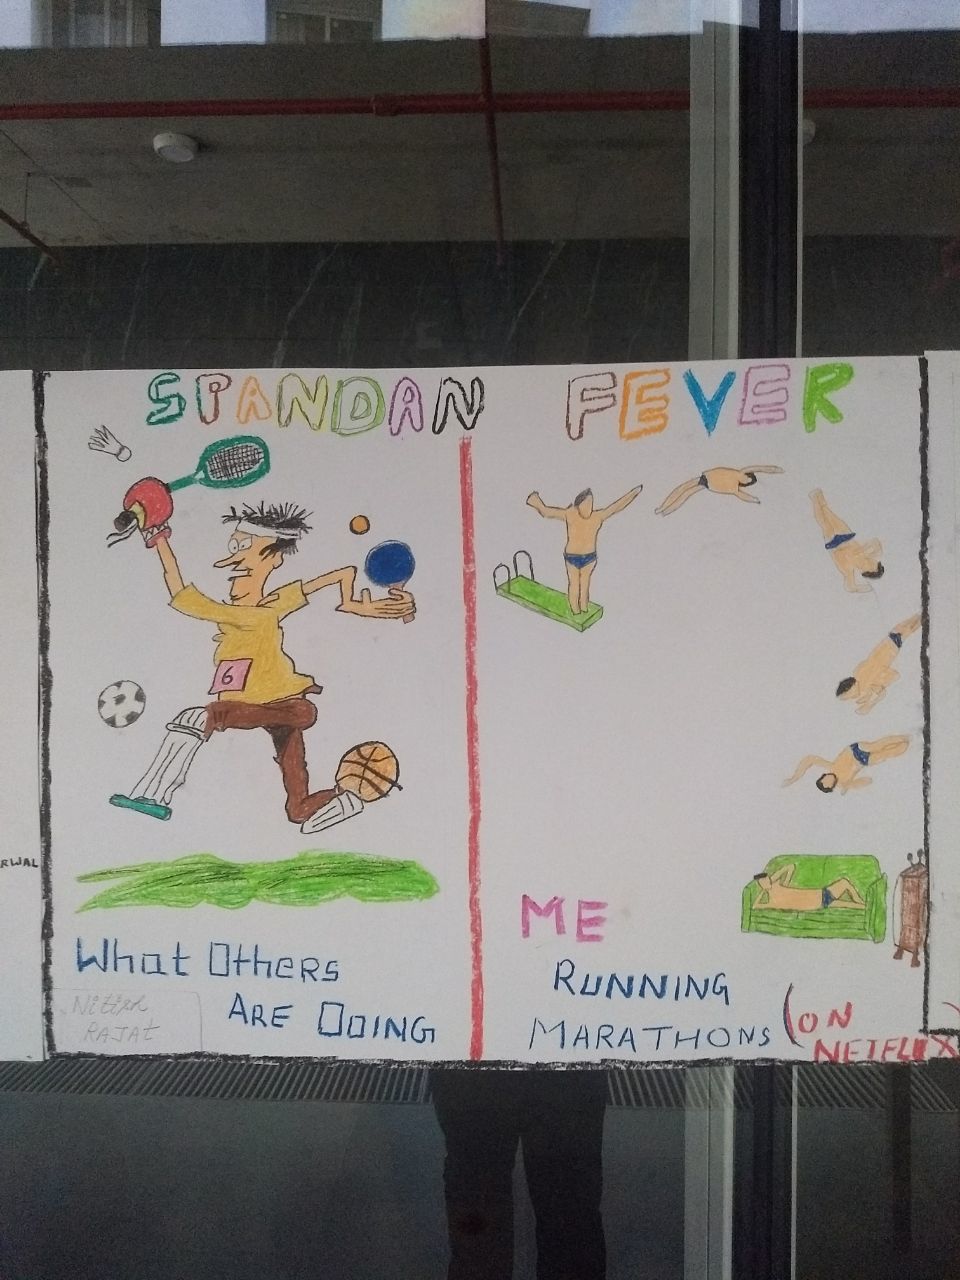 SPANDAN FEVER
6
What Others
Are Doing
Nitish
RAJAT
ME
RUNNING
MARATHONS (ON
NETFLIX)
RWAL